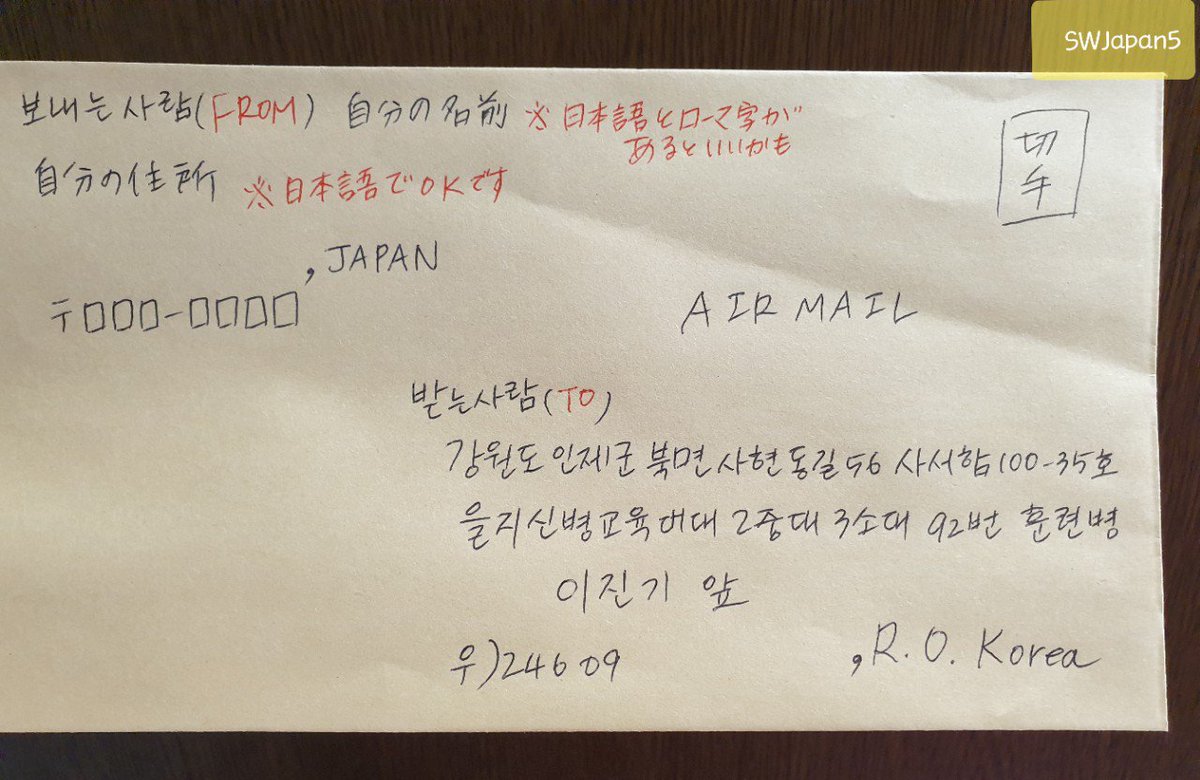 SWJapan5
보내는 사람(FROM) 自分の名前 ※日本語とローマ字が
あるといいかも
切
手
自分の住所 ※日本語でOKです
, JAPAN
〒□□□-□□□□
AIR MAIL
받는사람(TO)
강원도 인제군 북면 사현동길 56 사서함100-35호
을지신병교육대대 2중대 3소대 92번 훈련병
이진기 앞
우)24609
, R.O. Korea